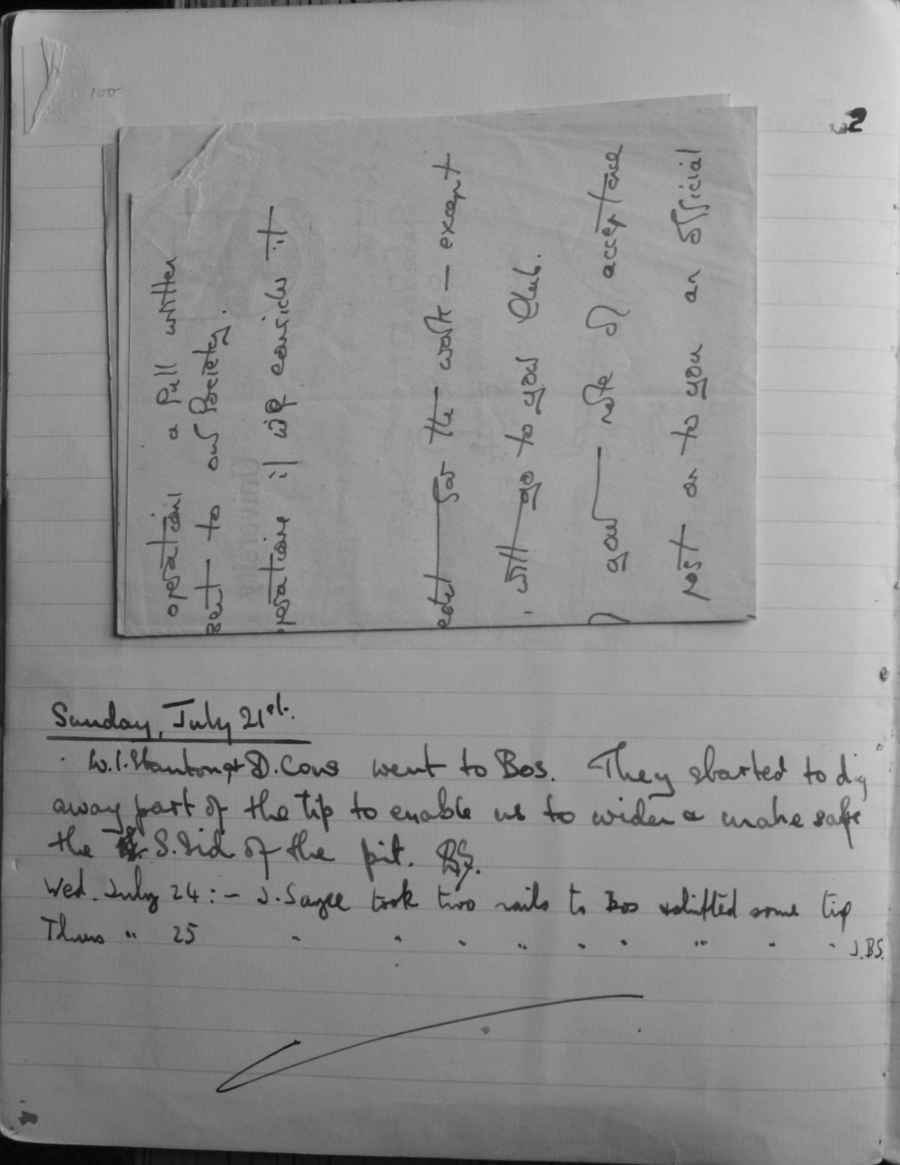 100
2
operations a full written
sent to our Society.
operations :/ we consider it
for the work — except
will go to your Club.
your note of acceptance
post on to you an official
Sunday, July 21st.
W.I. Stanton & D. Cons went to Bos. They started to dig
away part of the tip to enable us to widen & make safe
the S. Sid of the pit.
Wed. July 24 :- J. Sayce took two rails to Bos & shifted some tip
Thurs " 25 " " " " " " " " " J.B.S.